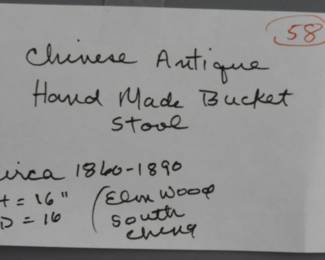 58
Chinese Antique
Hand Made Bucket
Stool
irca 1860-1890
t = 16" (Elm Wood
D = 16 South
China